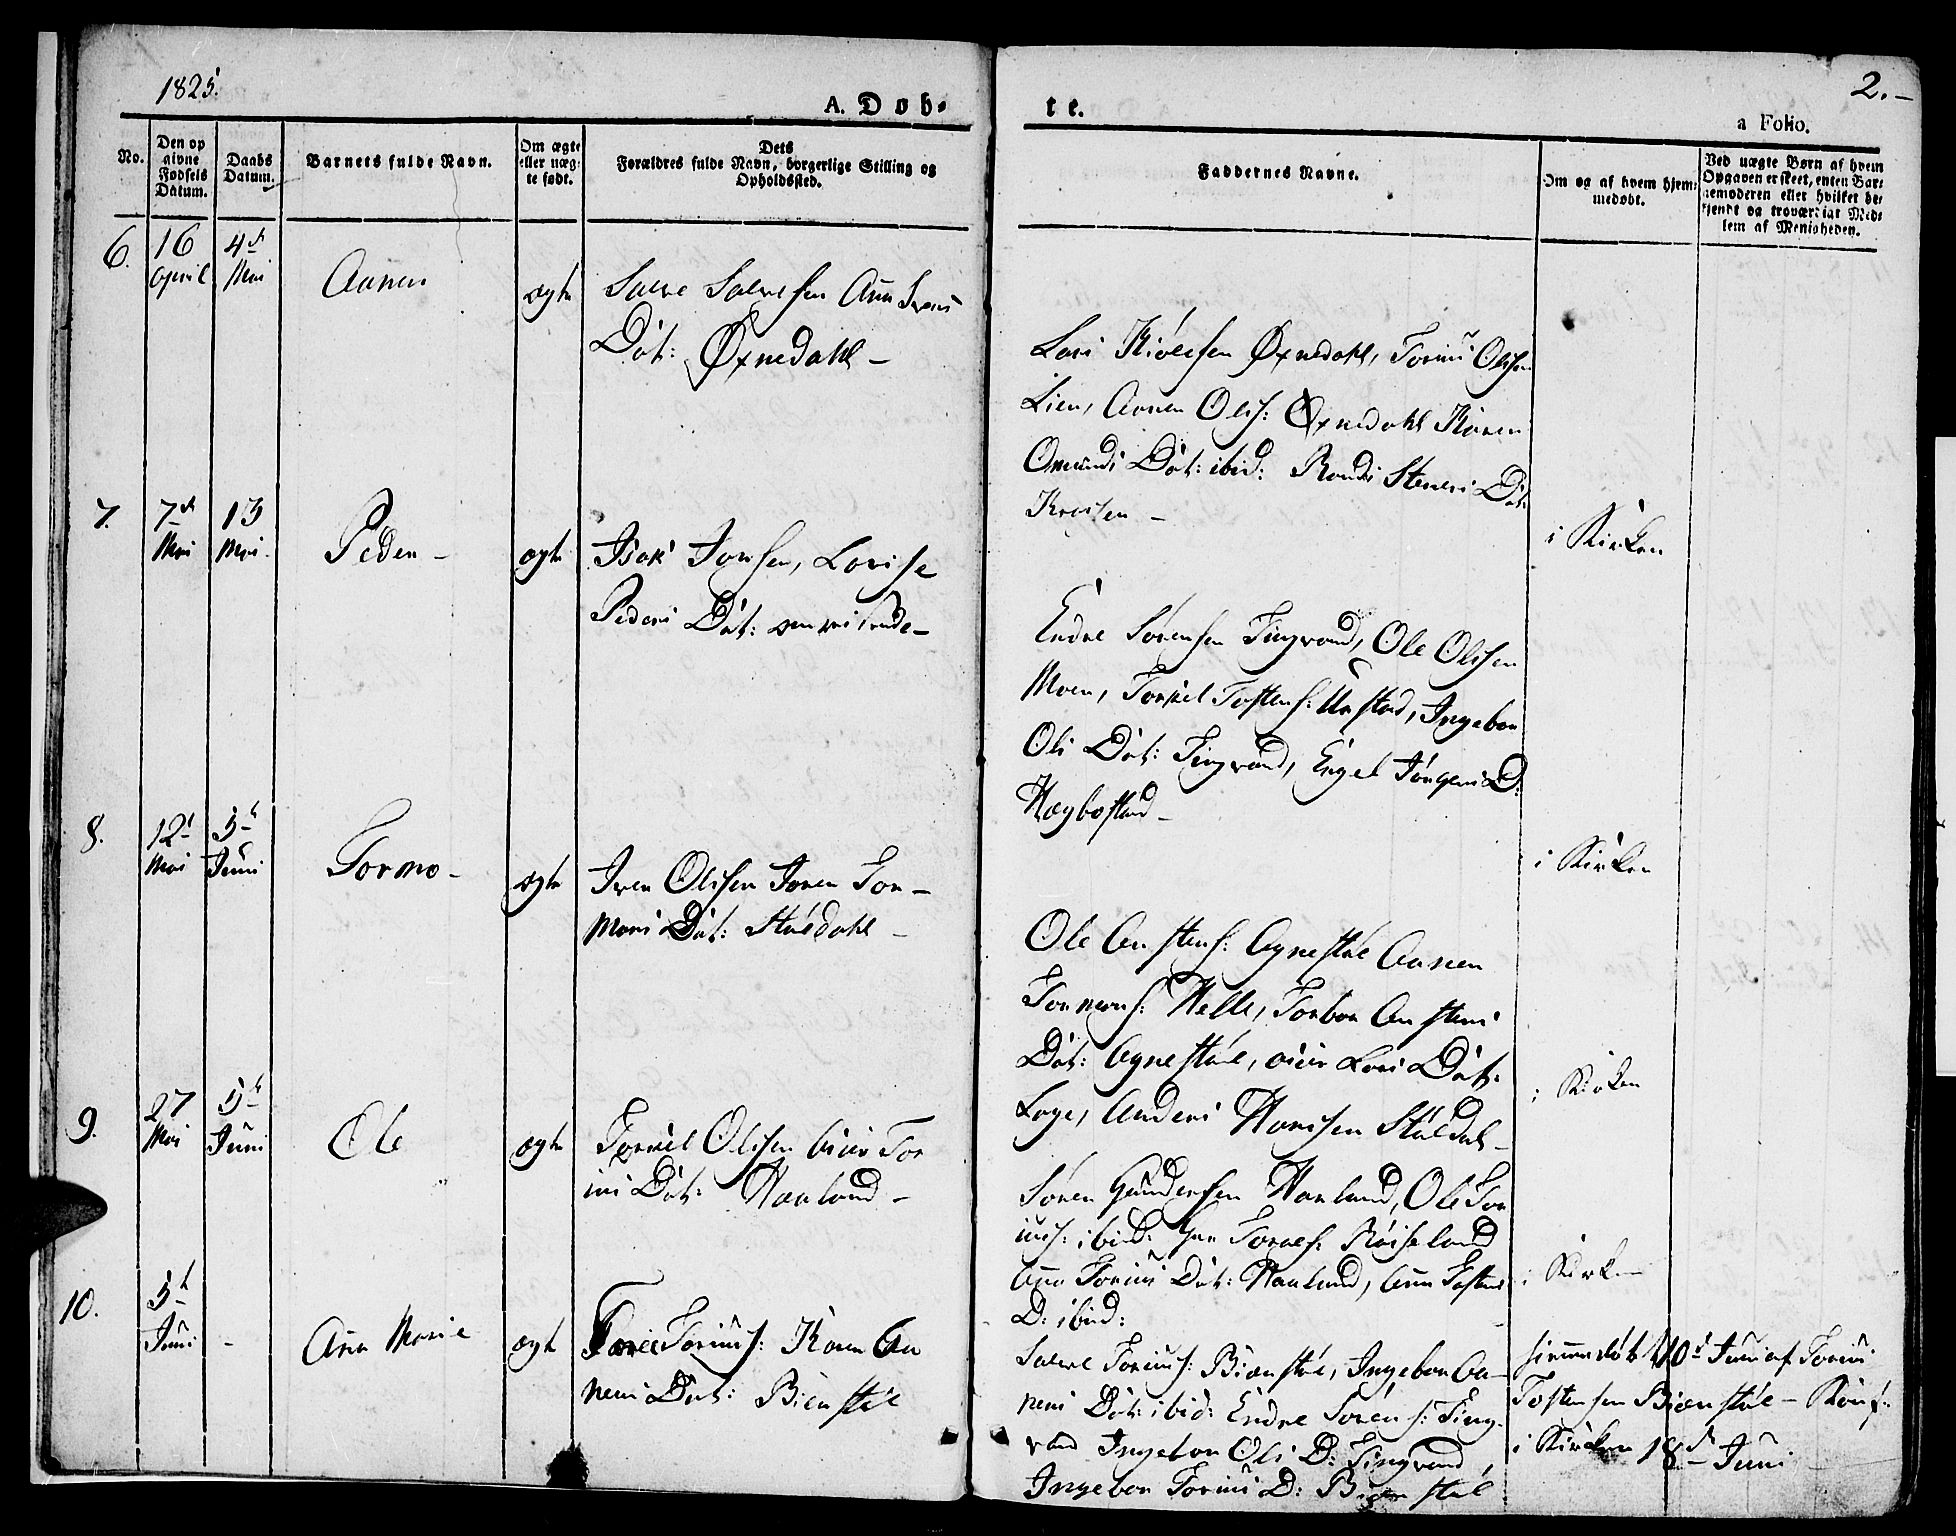 1825.
A. Døb-
te.
2.-
a Folio.
No.
Den op
givne
Fødsels
Datum.
Daabs
Datum.
Barnets fulde Navn.
Om ægte
eller uæg-
te født.
Dets
Forældres fulde Navn, borgerlige Stilling og
Opholdssted.
Faddernes Navne.
Om og af hvem hjem-
medøbt.
Ved uægte Børn af hvem
Opgaven er skeet, enten Bar-
nemoderen eller hvilket be-
kjendt og troværdigt Med-
lem af Menigheden.
6.
16
April
4de
Mai
Aanen
ægte
Salve Salvesen Ana
Dat: Øxnedahl -
Øxnedahl, Toriuś Olisen
Lien, Aanen Olis: Øxnedahl Karen
Omunds Dat: ibid: Dat:
i Kirken
7.
7de
Mai
13
Mai
Peder -
ægte
Isak Jonsen, Lovise
Peders Dat: omreisende -
Endre Sørensen Tingvand, Ole Olisen
Moen, Torkel Tostens: Urstad, Ingebor
Oli Dat: Tingvand, Engel Jørgens D:
Hægbostad -
i Kirken
8.
12
Mai
5te
Juni
Tormo -
ægte
Iver Olisen Joren Tor-
mons Dat: Ståldahl -
Ole Anstens: Agnestøl Aanen
Tormons: Helle, Torbor Anstens
Dat: Agnestøl, Dat:
Loge, Anders Hansen Ståldal -
i Kirken
9.
27
Mai
5te
Juni
Ole
ægte
Torkel Olisen Tor
Dat: Haaland -
Søren Gundersen Haaland, Ole Tor
ius: ibid: Røiseland
Toriuś Dat: Haaland, Ann
D: ibid:
i Kirken
10.
5te
Juni
-
Ann Marie
ægte
Toriuś: Karen Aa
nens Dat: Bienstøl
Salve Toriuś: Bienstøl, Ingebor Aa-
nens Dat: ibid: Endre Sørens: Ting-
vand Ingebor Oli D: Tingvand,
Ingebor Toriuś D: Bienstøl
hiemmedøbt 10de Juni af Toriuś
Tostensen Bienstøl - Konf:
i Kirken 18de Juni